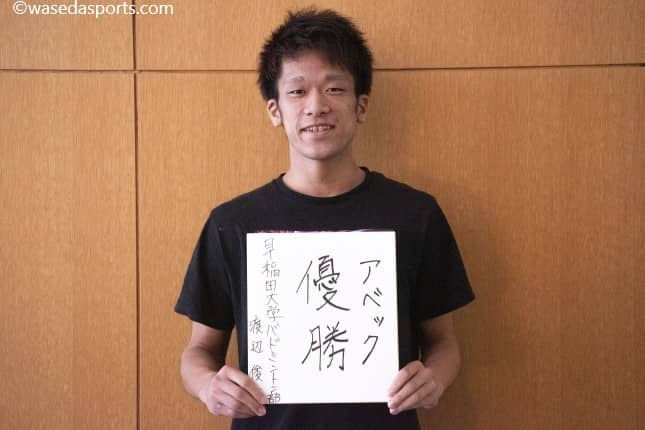 ©wasedasports.com
アベック
優勝
早稲田大学バドミントン部
渡辺 俊